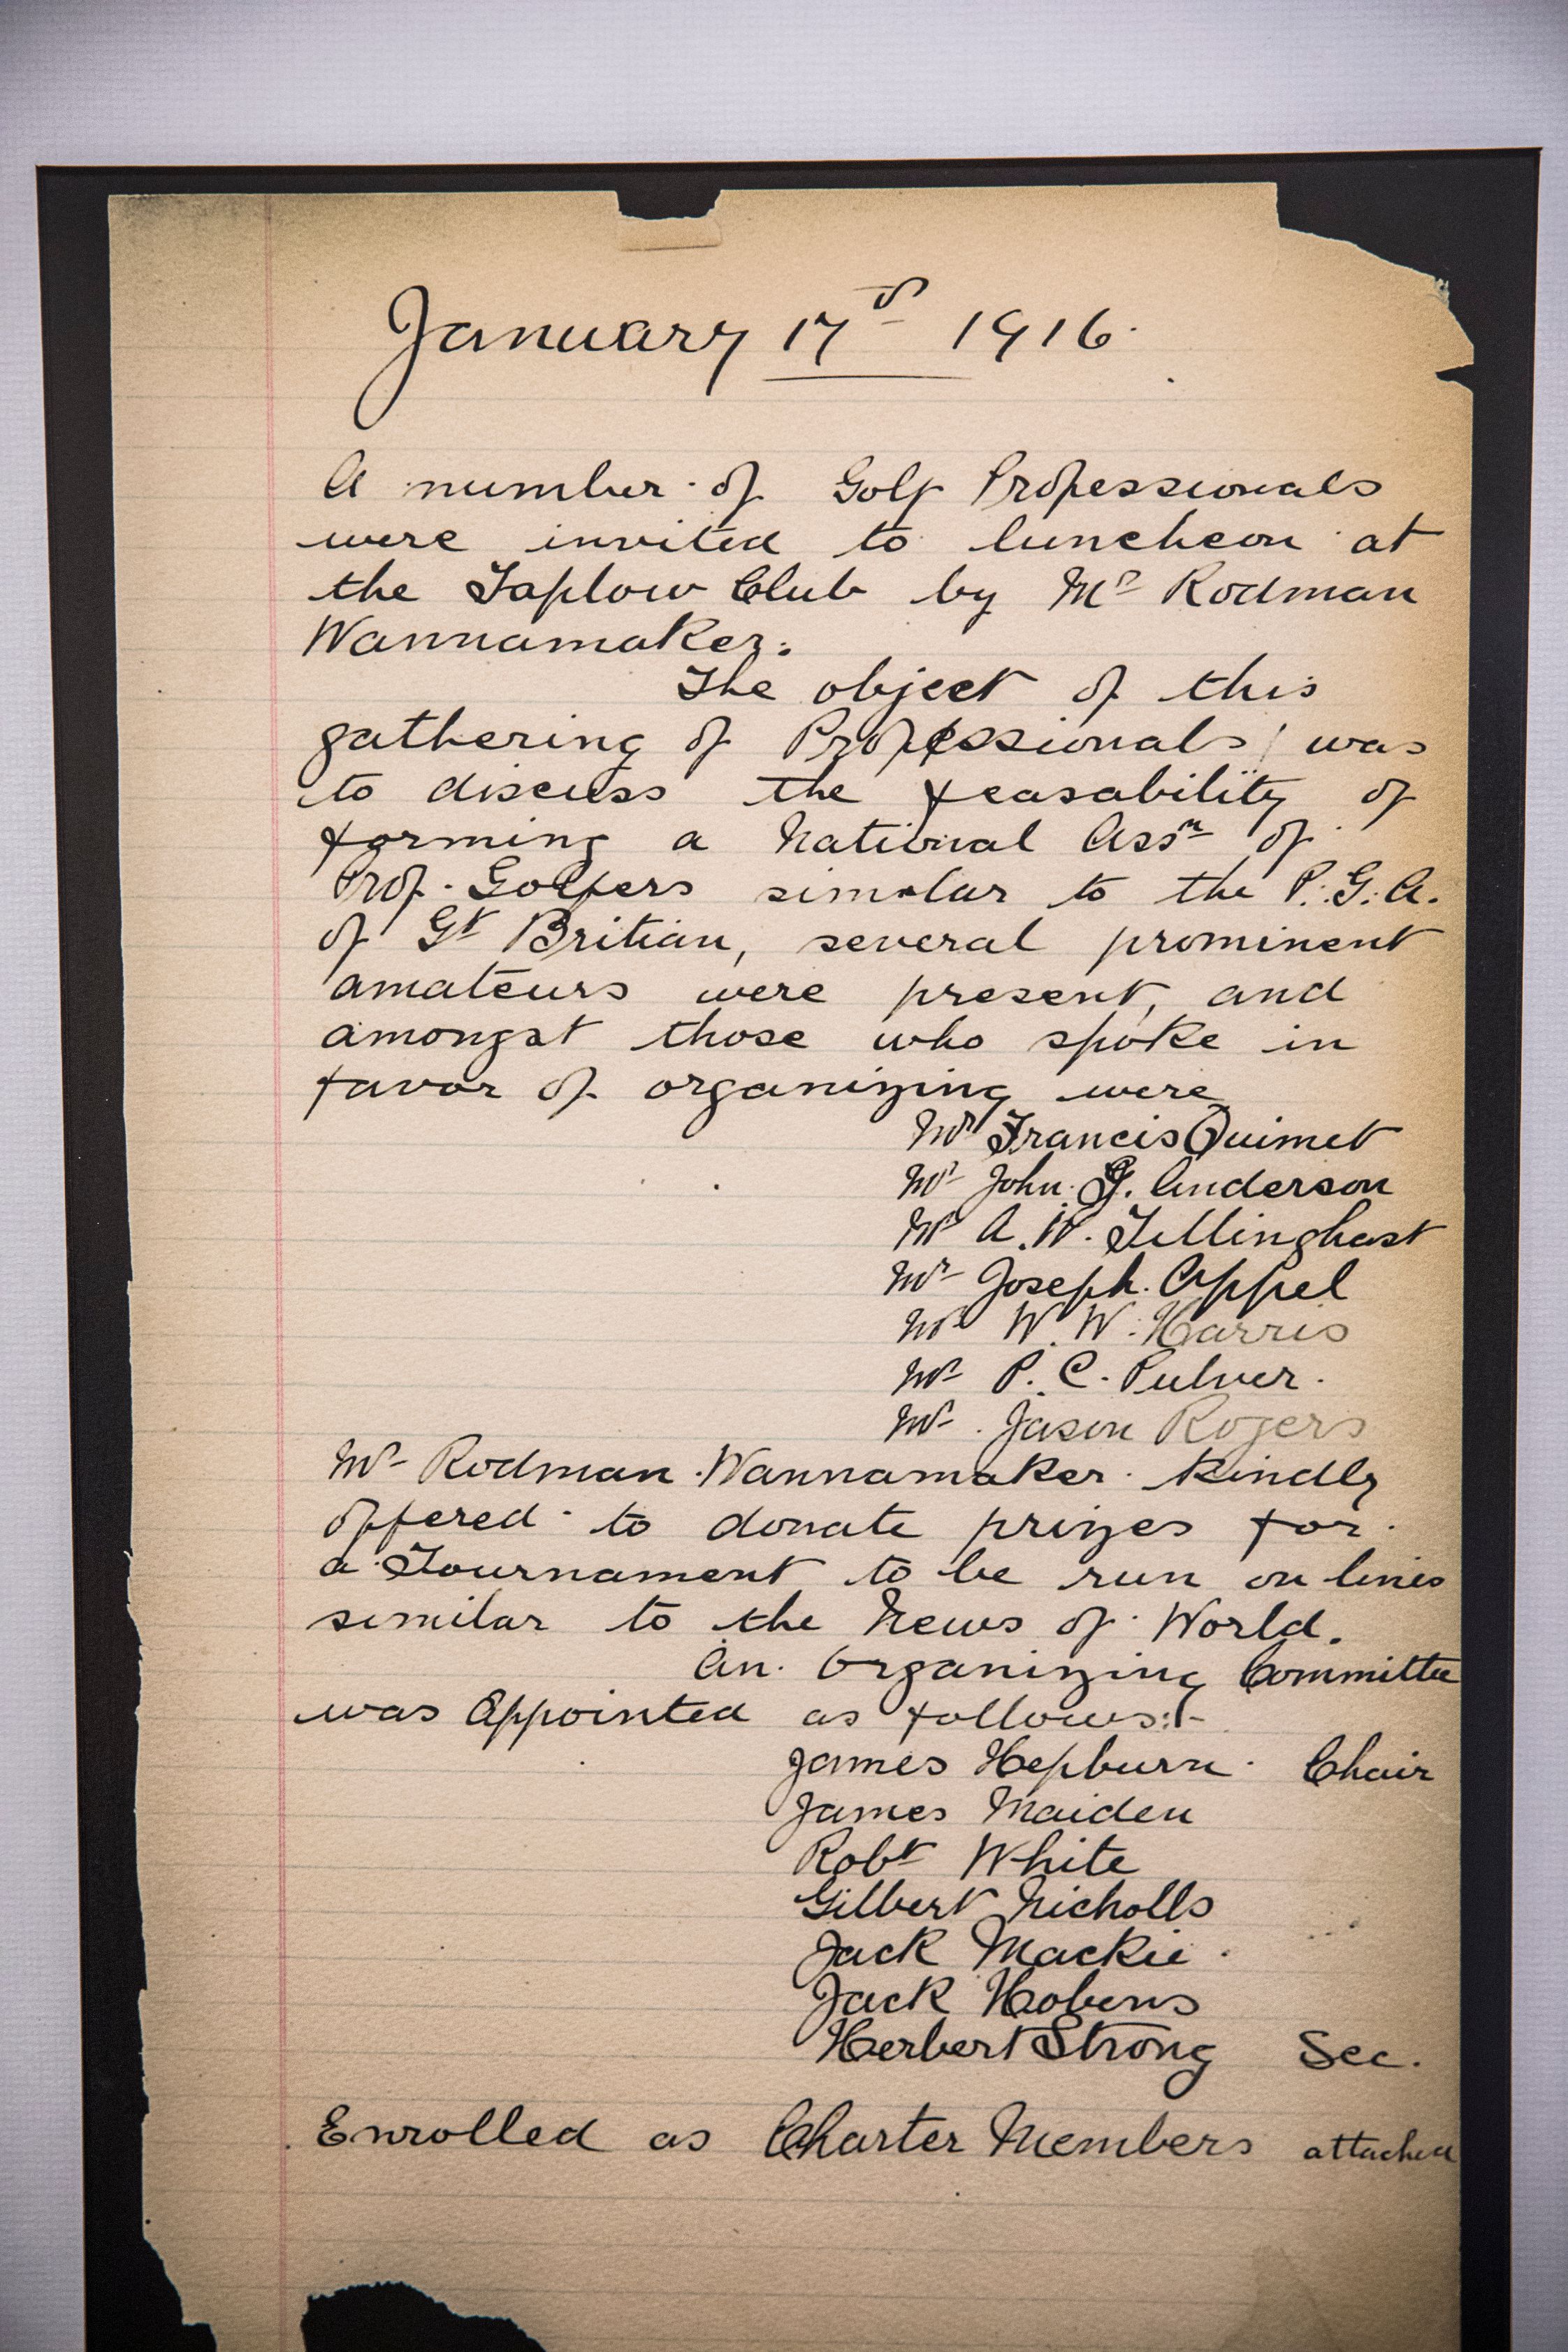 January 17th 1916.
A number of Golf Professionals
were invited to luncheon at
the Taplow Club by Mr Rodman
Wannamaker.
The object of this
gathering of Professionals, was
to discuss the feasability of
forming a National Assn of
Prof. Golfers similar to the P.G.A.
of Gt Britian, several prominent
amateurs were present, and
amongst those who spoke in
favor of organizing were
Mr Francis Ouimet
Mr John G. Anderson
Mr A.W. Tillinghast
Mr Joseph. Appel
Mr W. W. Harris
Mr P. C. Pulver.
Mr Jason Rogers
Mr Rodman Wannamaker kindly
offered to donate prizes for
a Tournament to be run on lines
similar to the News of World.
An Organizing Committee
was Appointed as follows:-
James Hepburn. Chair
James Maiden
Robt White
Gilbert Nicholls
Jack Mackie.
Jack Hobens
Herbert Strong Sec.
Enrolled as Charter Members attached